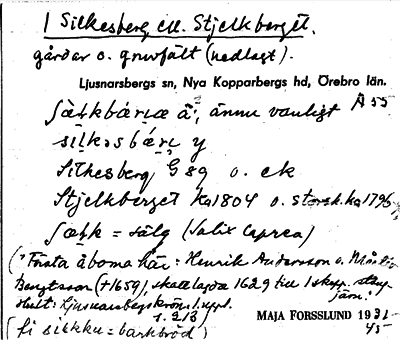 1 Silkesberg, ell. Stjelkberget.
gårdar o. gruvfält (nedlagt).
Ljusnarsbergs sn, Nya Kopparbergs hd, Örebro län.
ännu vanligt Ä 55
y
Silkesberg G 89 o. ek
Stjelkberget Ka 1804 o. storsk. ka 1796
= sälg (Salix Caprea)
(Första åboma här: Henrik Andersson o. Mårten
Bengtsson (+1659), skattlagda 1629 till 1 skepp. stångjärn.
Hult: Ljusnarsbergskrön. 1. uppl.
s. 213)
(fi silkku = barkbröd)
MAJA FORSSLUND 1931-
45